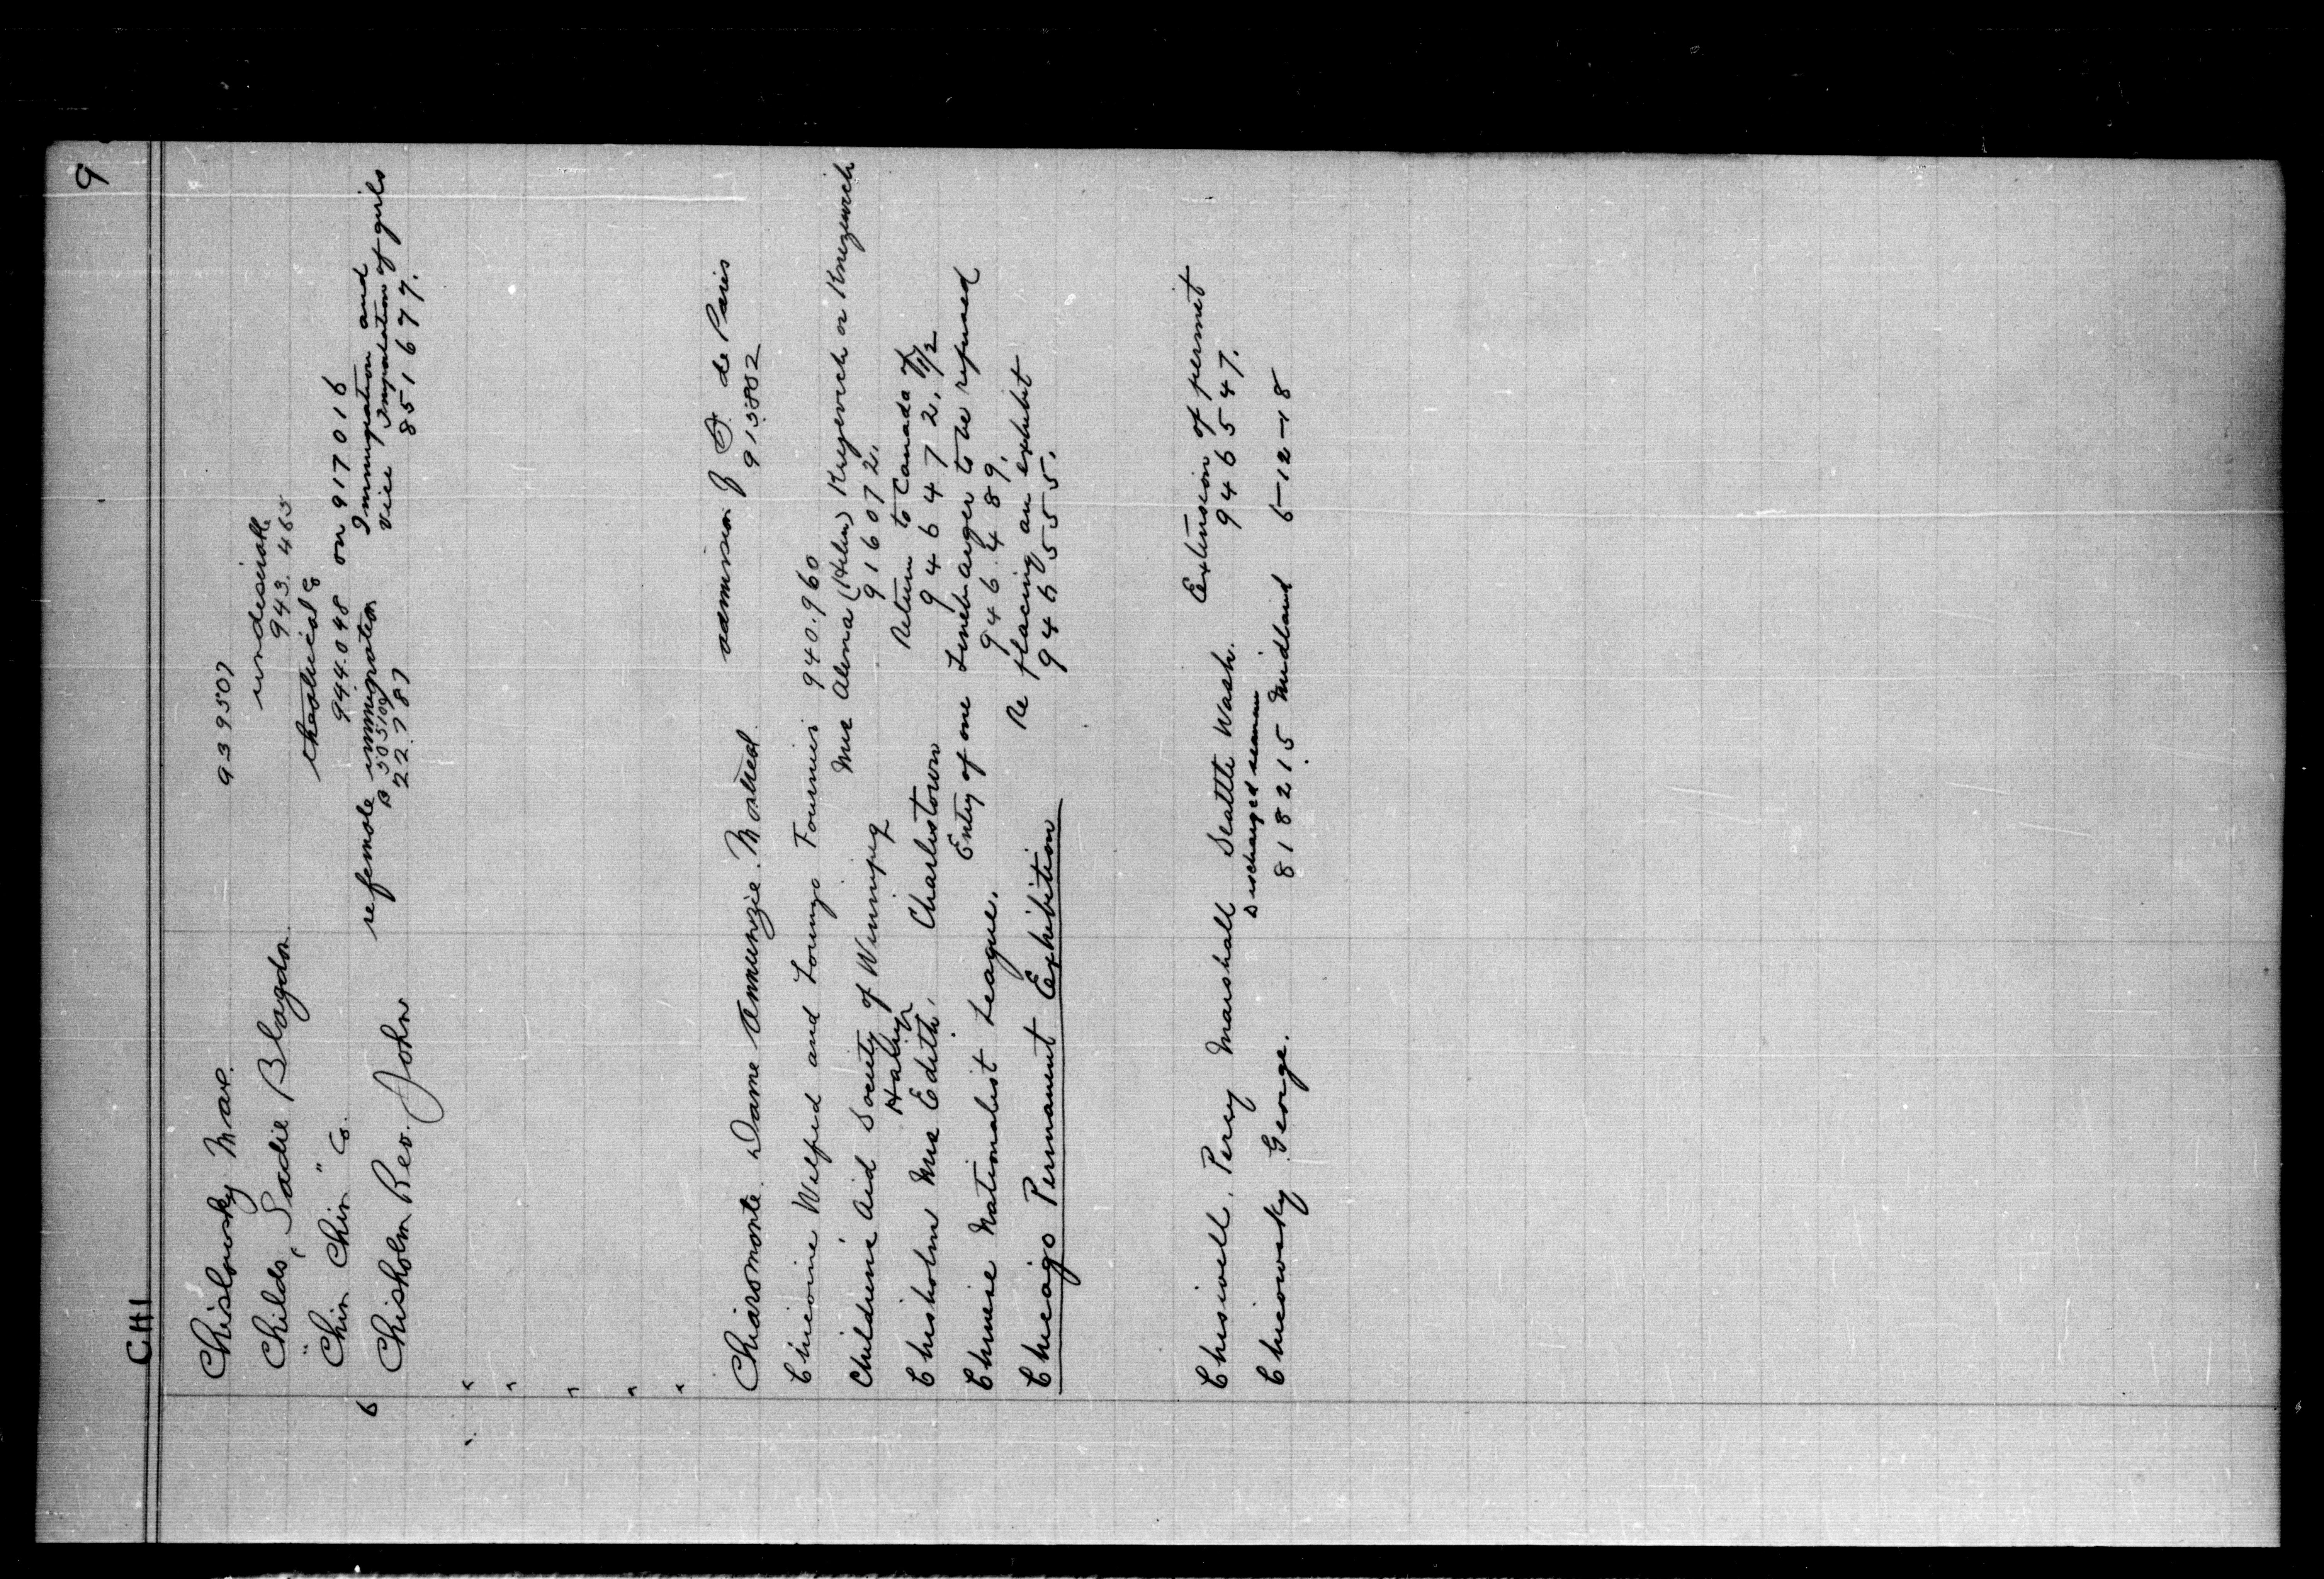 9
CHI
Chislowsky Max. 939507
Childs, Sadie Blagdon. undesirable
943.465
"Chin Chin" Co. theatrical Co
944.048 on 917016
6 Chisholm Rev. John re female immigration Immigration and
B 505100 Vice / Importation of girls
22787 851677.
"
"
"
"
"
Chiaromonte. Dame Annunzie. Montreal. admission J. D. de Paris
913882
Chicoine Wilfred and Lorenzo Fournier 940.960
Children's Aid Society of Winnipeg Mrs Alena (Helen) Kregevich or Knezevich
916072.
Chisholm Mrs Edith. Charlestown Return to Canada of
946472.
Chinese Nationalist League. Entry of one Linebarger to be refused
946489.
Chicago Permanent Exhibition Re placing an exhibit
946555.
Chisivell. Percy Marshall Seattle Wash. Extension of permit
Discharged seaman 946547.
Chicowsky George. 818215 Midland 6-12-18